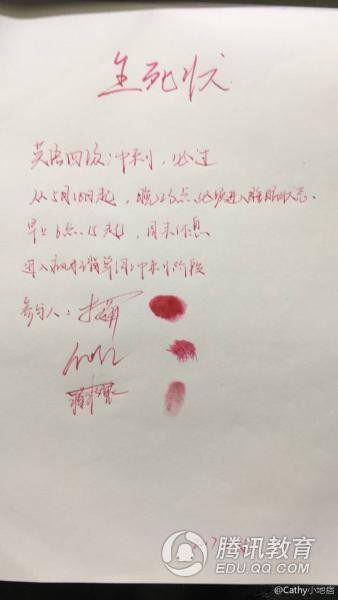 生死状
英语四级:冲刺,必过
从5月18日起,晚12点必须进入睡眠状态.
早上6点15起,周末休息
进入 背单词冲刺阶段
参与人:
腾讯教育
EDU.QQ.COM
@Cathy小地痞